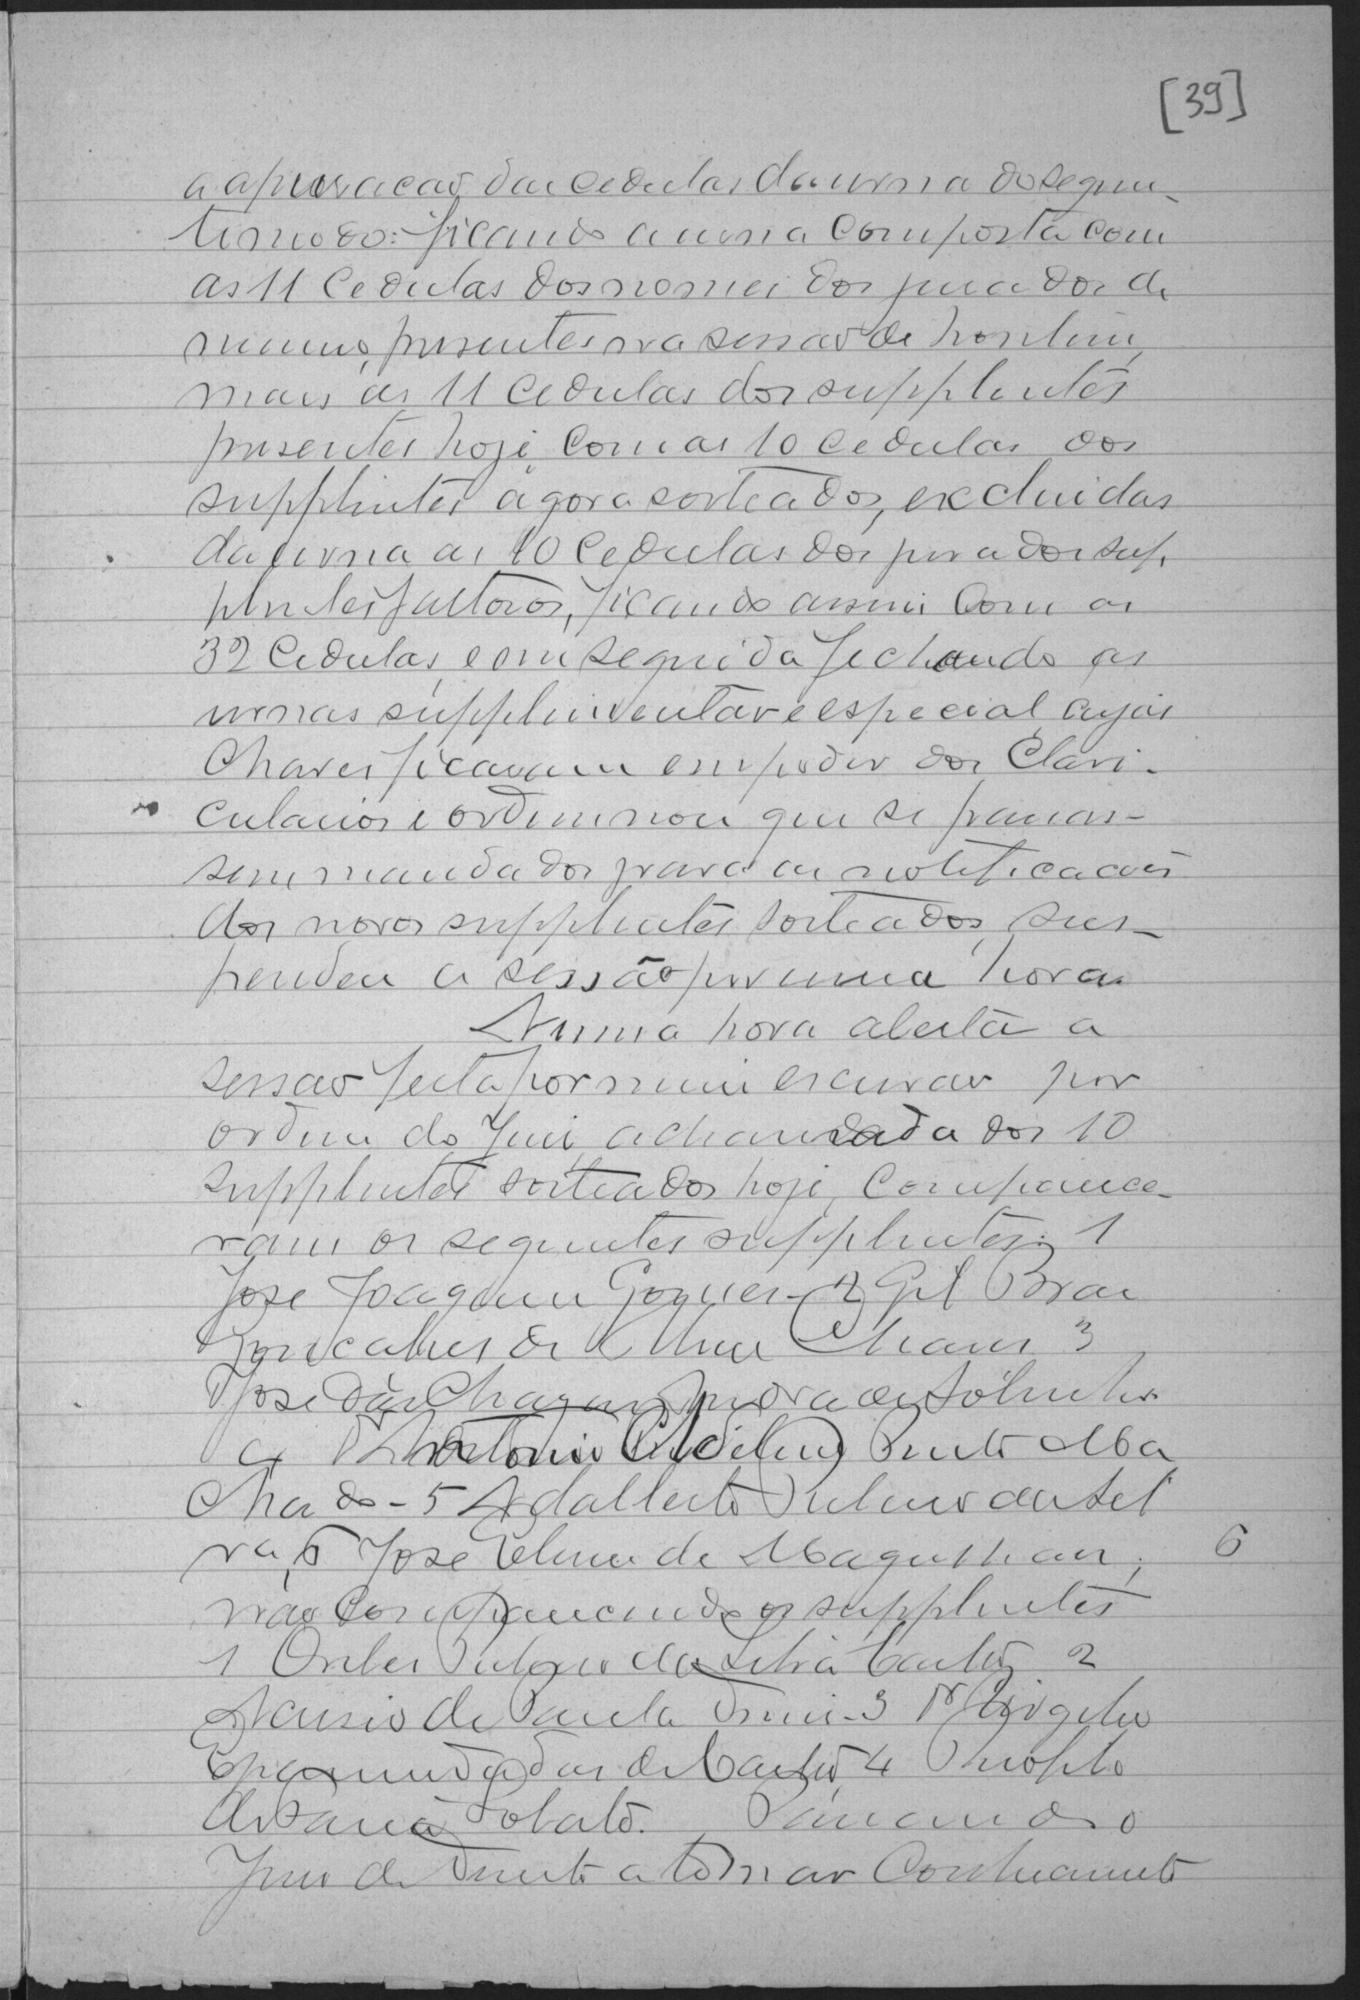 [39]
a apuracao das cedulas da urna do seguin-
te modo: ficando a urna composta com
as 11 cedulas dos nomes dos jurados de
numero, presentes na sessao de hontem,
mais as 11 cedulas dos supplentes
presentes hoje, com as 10 cedulas dos
supplentes agora sorteados, excluidas
da urna as 10 cedulas dos jurados sup-
plentes faltosos, ficando assim com as
32 cedulas, e em seguida fechando as
urnas supplementar e especial, cujas
chaves ficaram em poder dos Clavi-
cularios e ordennou que se passas-
sem mandados para as notificacoes
dos novos supplentes sorteados, sus-
pendeu a sessão por uma hora.
A uma hora aberta a
sessao feita por mim escrivao por
ordem do Juiz, a chamada dos 10
supplentes sorteados hoje, comparece-
ram os seguintes supplentes: 1
Jose Joaquim Gomes - 2 Gil Braz
Gonçalves de 3
Jose das Chagas de
4 Dr Antonio Pinto Ma
chado - 5 Adalberto da Sil
va, 6 Jose de Magalhaes, 6
não comparecendo os supplentes
1 da Silva Castro 2
de Paula - 3 Dr Virgilio
Epaminondas de Castro 4 Theophilo
de Faria Lobato. Passando o
Juiz de Direito a tomar conhecimento